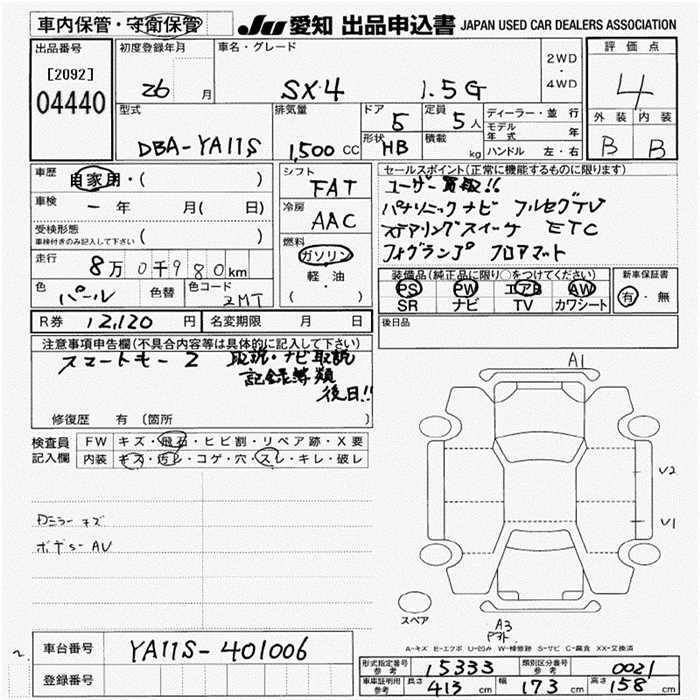 車内保管・守衛保管 JU 愛知 出品申込書 JAPAN USED CAR DEALERS ASSOCIATION
出品番号 初度登録年月 車名・グレード 2WD・4WD 評価点
[2092] 26 月 SX4 1.5G 4
04440
型式 排気量 ドア 定員 ディーラー・並行 外装 内装
DBA-YA11S 1,500 CC 5 5人 モデル年式 年 B B
形状 HB 積載 kg ハンドル 左・右
車歴 自家用・( ) シフト FAT セールスポイント(正常に機能するものに限ります)
車検 一 年 月( 日) 冷房 AAC ユーザー買取!!
受検形態 ( ) パナソニックナビ フルセグTV
車検付きのみ記入して下さい 燃料 ステアリングスイッチ ETC
走行 8万0千980km ガソリン フォグランプ フロアマット
軽・油 装備品(純正品に限り○をつけてください) 新車保証書
色 パール 色替 色コード 2MT ( ) PS PW エアB AW 有・無
SR ナビ TV カワシート
R券 12,120円 名変期限 月 日 後日品
注意事項申告欄(不具合内容等は具体的に記入して下さい)
スマートキー2 取説・ナビ取説
記録簿類
後日!!
修復歴 有 (箇所 )
検査員 FW キズ・飛石・ヒビ割・リペア跡・X要
記入欄 内装 キズ・汚レ・コゲ・穴・スレ・キレ・破レ
A1
U2
U1
ボデーS-AU
スペア
A3
A-キズ E-エクボ U-凹み W-補修跡 S-サビ C-腐食 XX-交換済
車台番号 YA11S-401006
登録番号
形式指定番号 参考 15333 類別区分番号 参考 0021
車庫証明用 参考 長さ 413 cm 幅 173 cm 高さ 158 cm